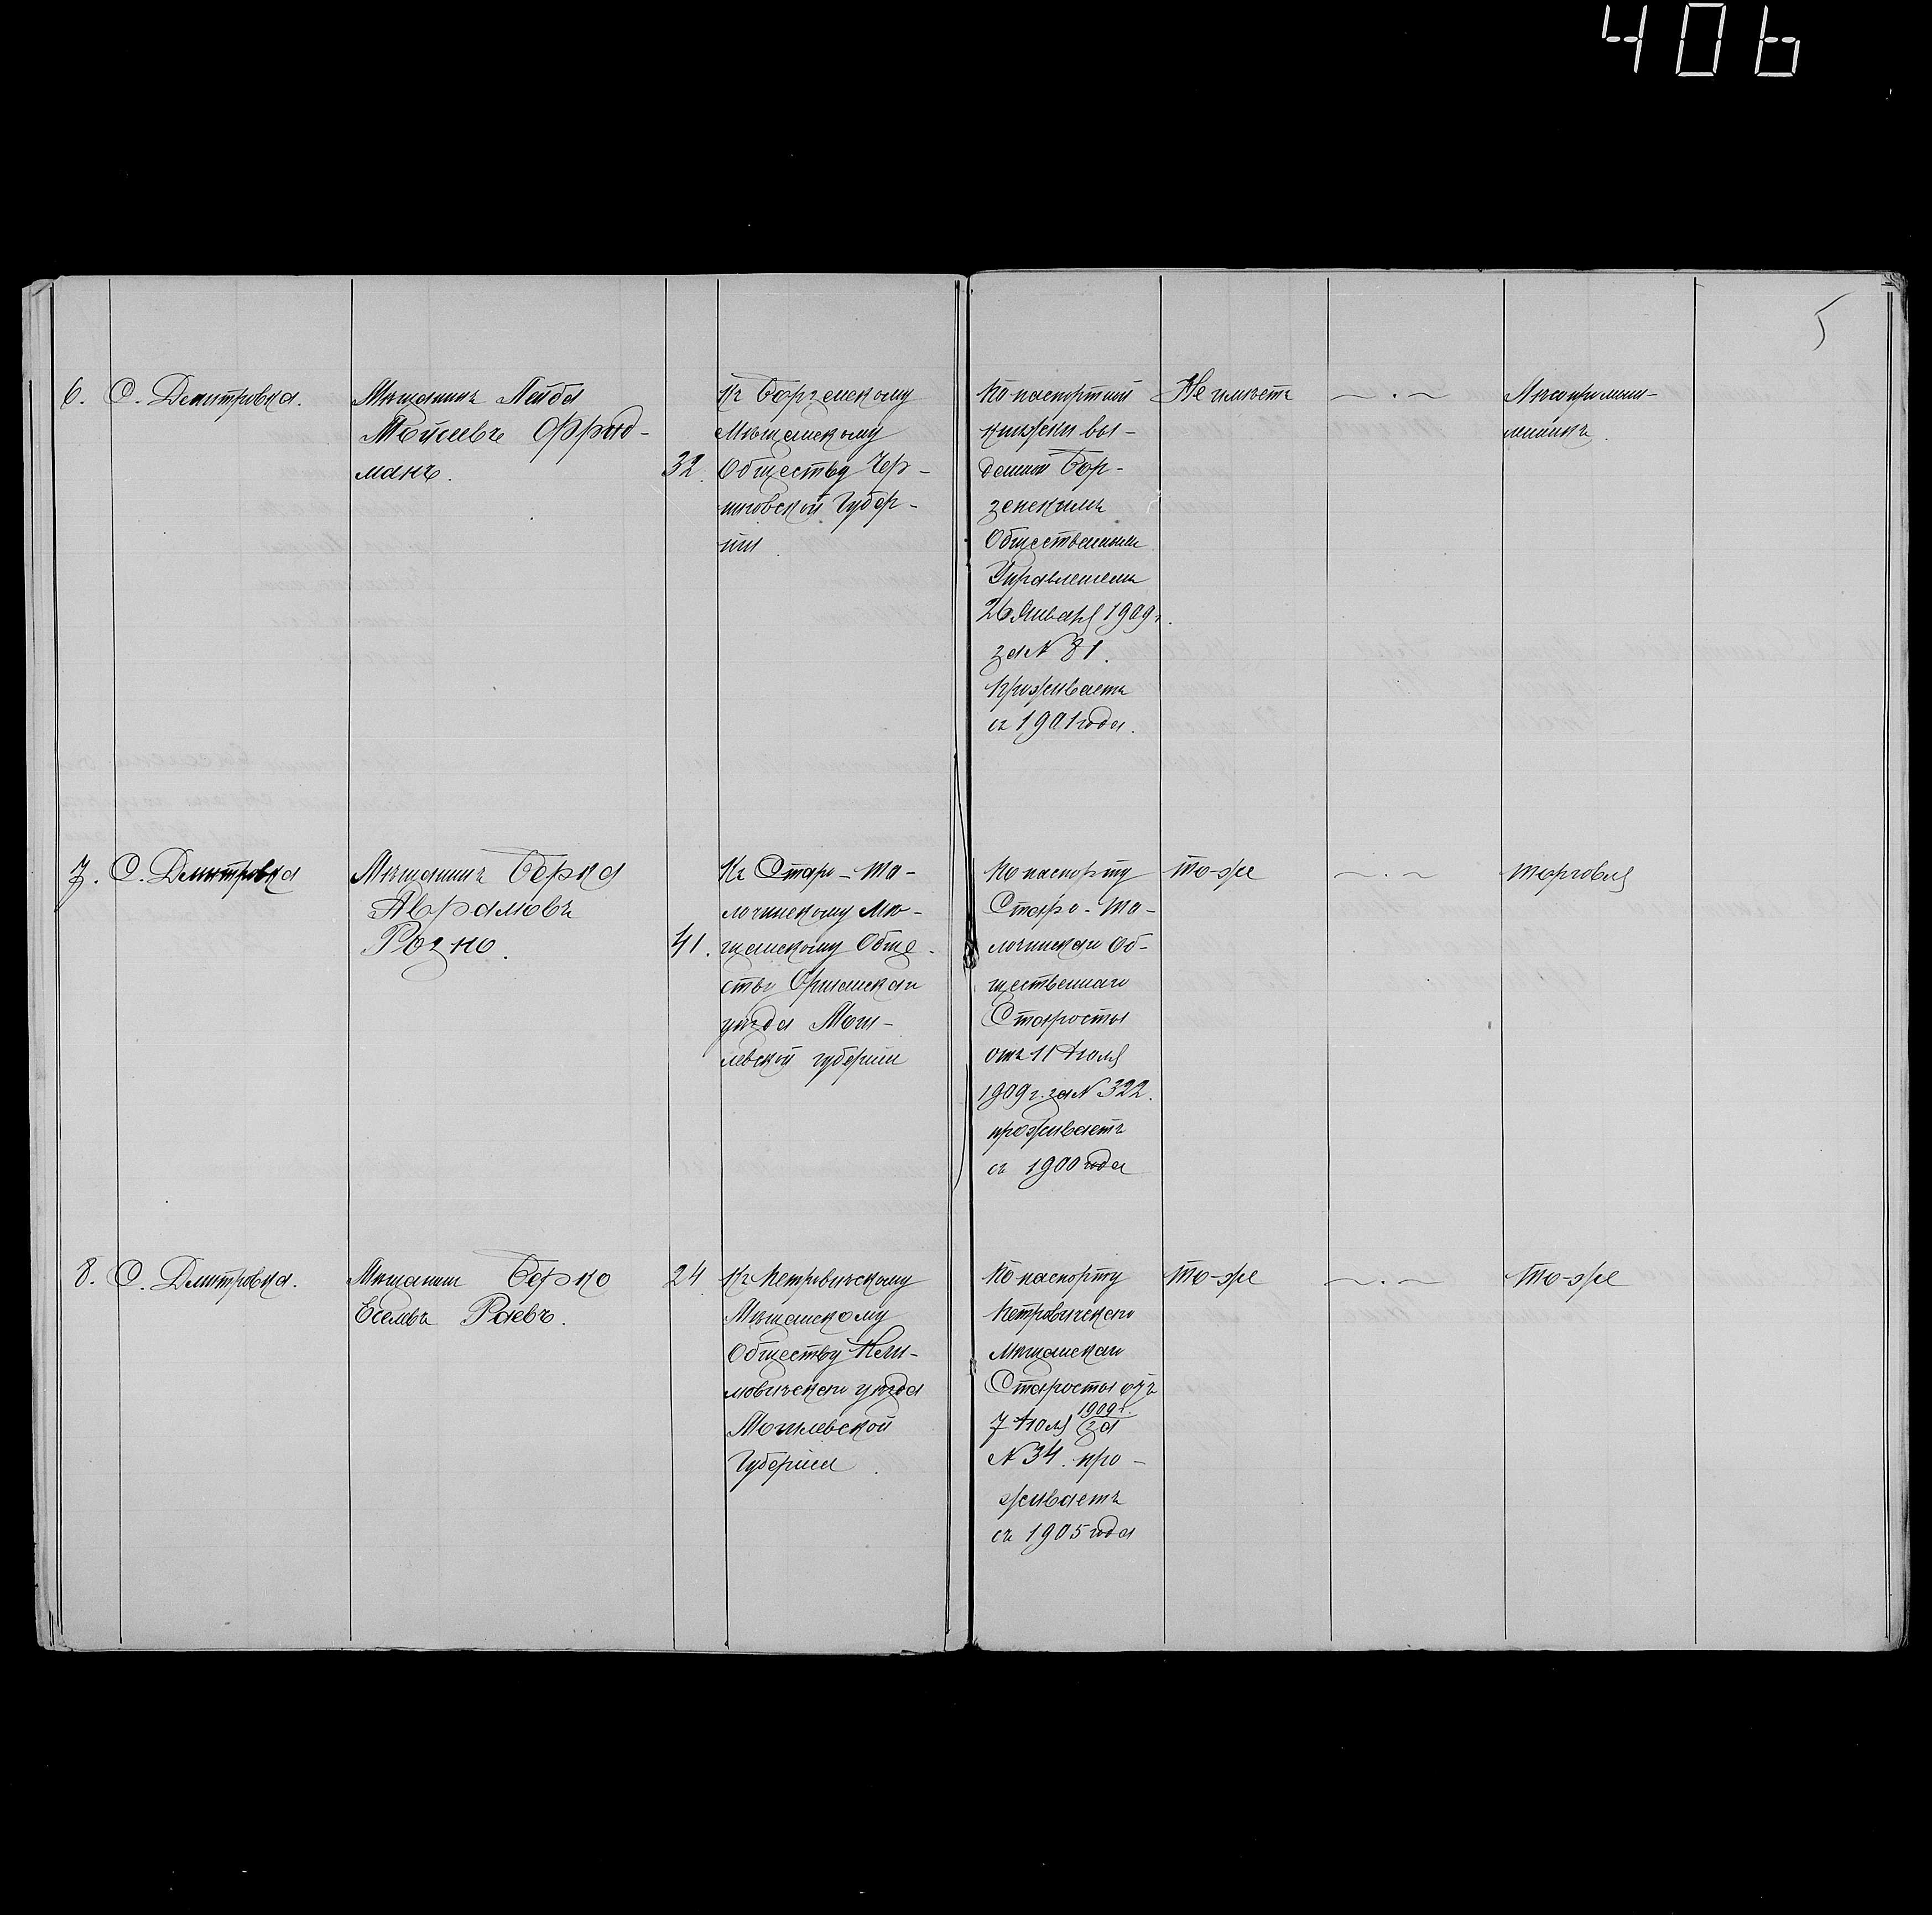 406
5
6. С. Дмитровка.
Мѣщанинъ Лейба
Мойсеевъ Фрид-
манъ.
32.
Къ Борзенскому
Мѣщанскому
Обществу Чер-
ниговской Губер-
ніи
По паспортной
книжки вы-
данной Бор-
зенскимъ
Общественнымъ
Управленіемъ
26 Января 1909 г.
за № 81.
Проживаетъ
съ 1901 года.
Не имѣетъ
— . —
Лѣсопромыш-
ленникъ.
7. С. Дмитровка
Мѣщанинъ Берка
Аврамовъ
41.
Къ Старо-То-
лочинскому Мѣ-
щанскому Обще-
ству Оршанскаго
уѣзда Моги-
левской губерніи
По паспорту
Старо-То-
лочинскаго Об-
щественнаго
Старосты
отъ 11 Іюля
1909 г. за № 322.
проживаетъ
съ 1900 года
То-же
— . —
Торговля
8. С. Дмитровка.
Мѣщанин Берко
Еселевъ Раевъ.
24
Къ Петровичскому
Мѣщанскому
Обществу Кли-
мовичскаго уѣзда
Могилевской
Губерніи
По паспорту
Петровичскаго
Мѣщанскаго
Старосты отъ
7 Іюля 1909 г. за
№ 34. про-
живаетъ
съ 1905 года
То-же
— . —
То-же